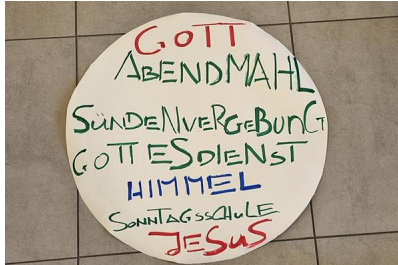 GOTT
ABENDMAHL
SÜNDENVERGEBUNG
GOTTESDIENST
HIMMEL
SONNTAGSSCHULE
JESUS